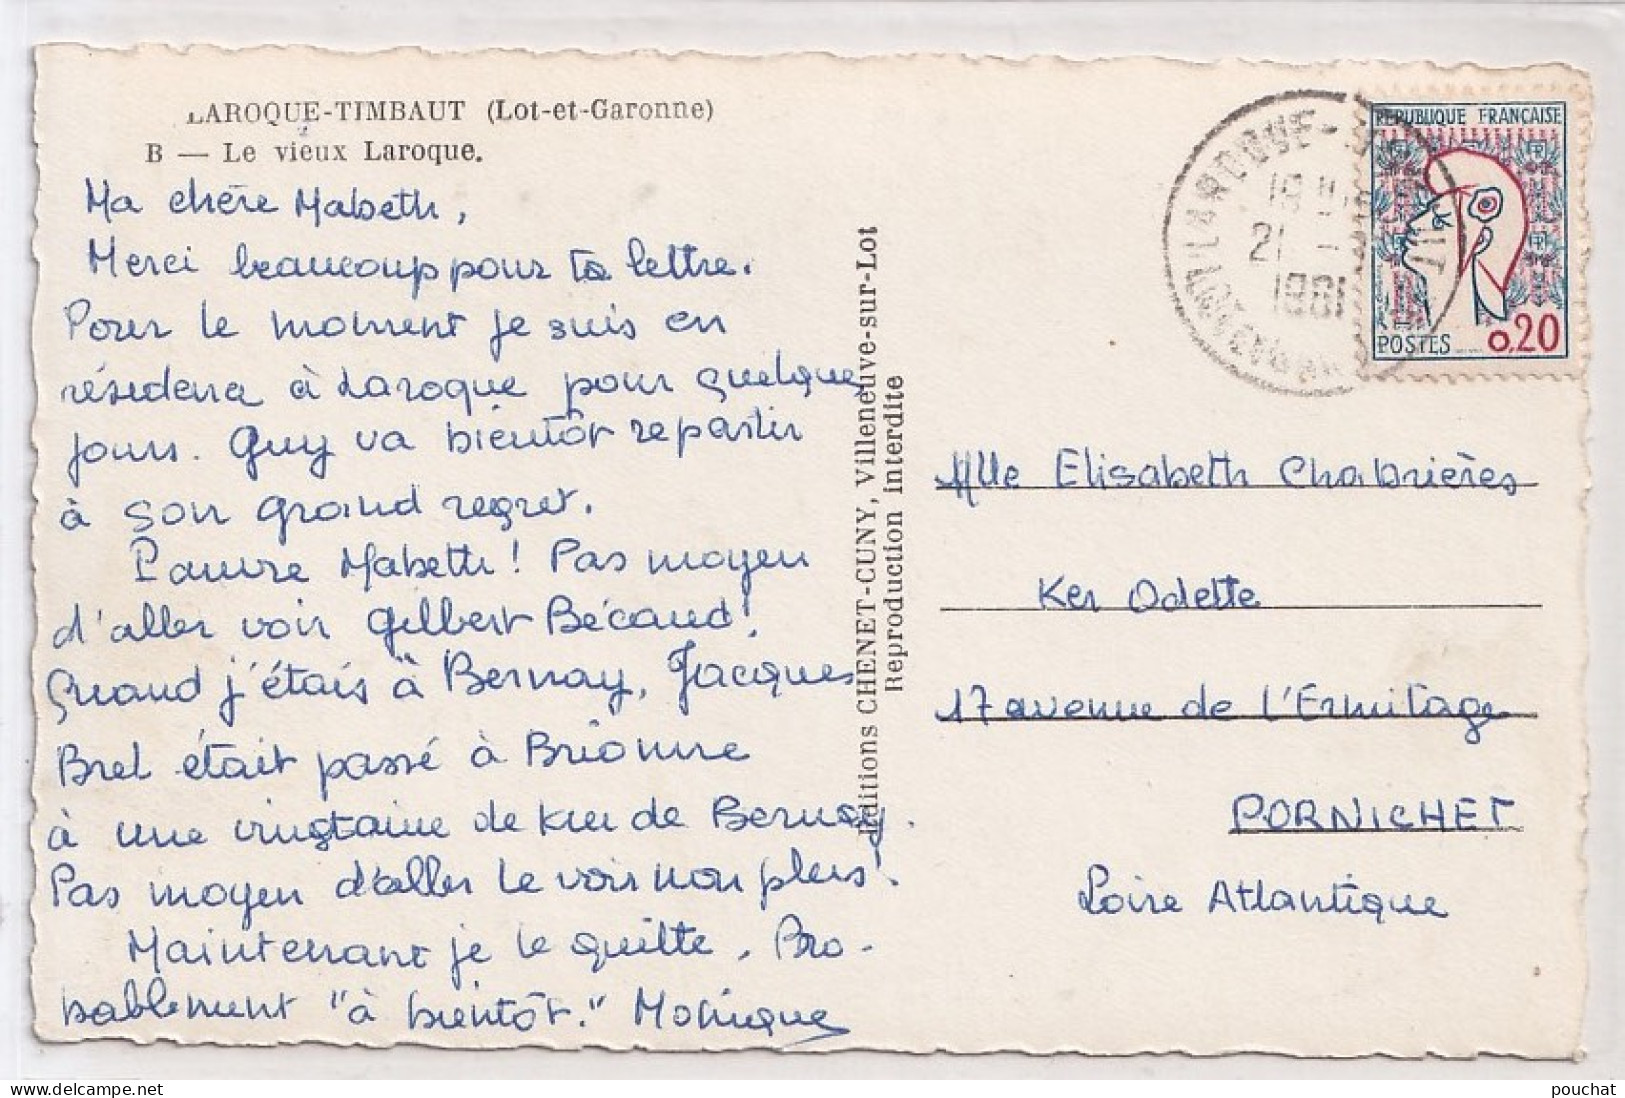 LAROQUE-TIMBAUT (Lot-et-Garonne)
B — Le vieux Laroque.
Ma chère Mabeth,
Merci beaucoup pour ta lettre.
Pour le moment je suis en
résidence à Laroque pour quelque
jours. Guy va bientôt repartir
à son grand regret.
Pauvre Mabeth! Pas moyen
d'aller voir Gilbert Bécaud!
Quand j'étais à Bernay, Jacques
Brel était passé à Brionne
à une vingtaine de km de Bernay.
Pas moyen d'aller le voir non plus!
Maintenant je te quitte. Pro-
bablement "à bientôt." Monique
Editions CHENET-CUNY, Villeneuve-sur-Lot
Reproduction interdite
REPUBLIQUE FRANÇAISE
POSTES 0,20
21 -
1961
Mlle Elisabeth Chabrières
Ker Odette
17 avenue de l'Ermitage
PORNICHET
Loire Atlantique
delcampe.net
pouchat